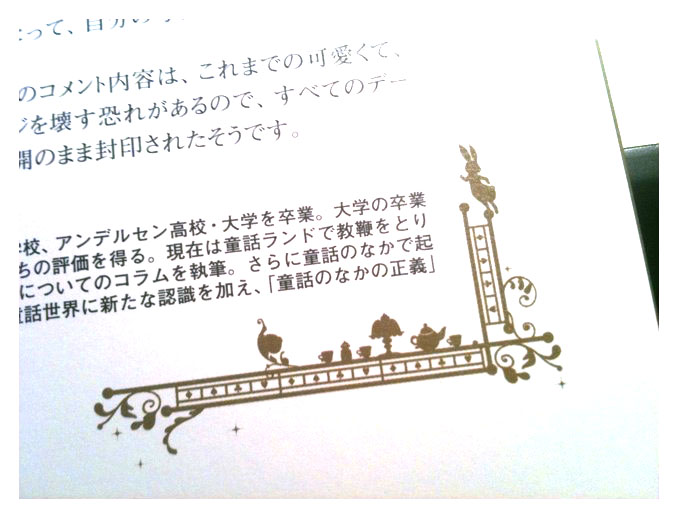 って、自分の
のコメント内容は、これまでの可愛くて、
ジを壊す恐れがあるので、すべてのデー
開のまま封印されたそうです。
学校、アンデルセン高校・大学を卒業。大学の卒業
ちの評価を得る。現在は童話ランドで教鞭をとり
についてのコラムを執筆。さらに童話のなかで起
童話世界に新たな認識を加え、「童話のなかの正義」